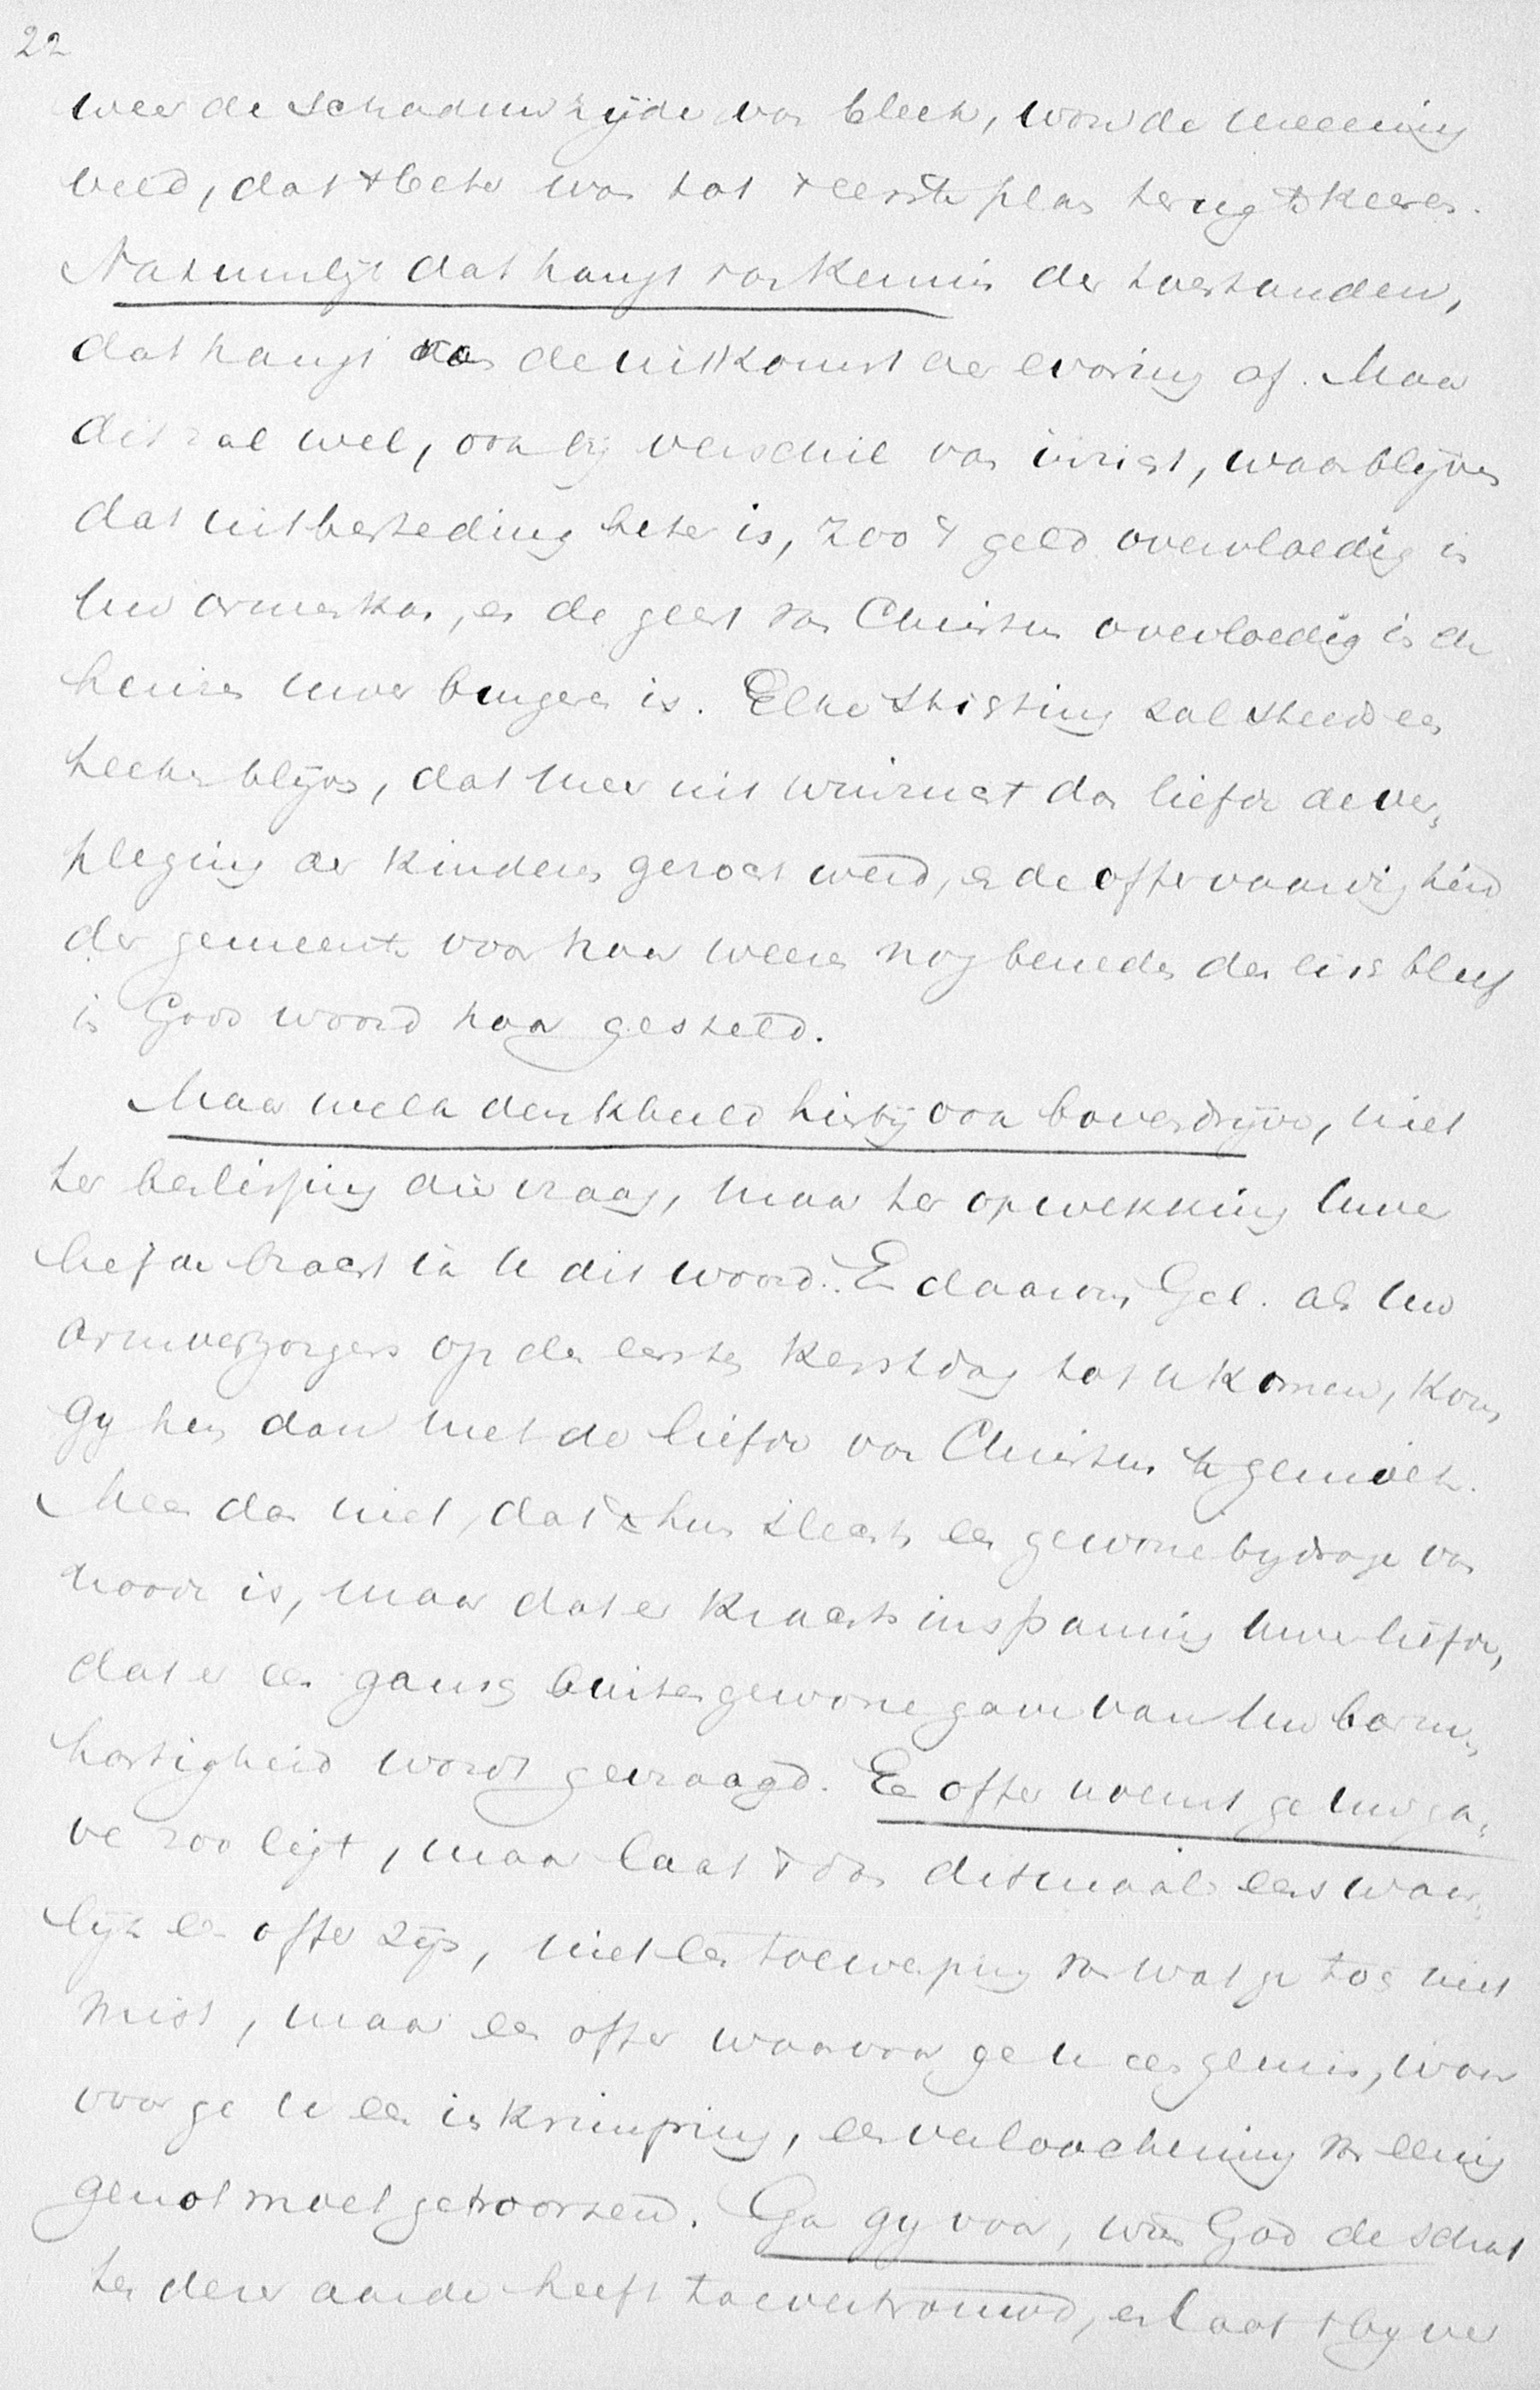 22
weer de schaduwzijde van bleek, won de meening
veld, dat 't beter was tot 't eerste plan terug te keeren.
Natuurlijk dat hangt van kennis der toestanden,
dat hangt van de uitkomst der ervaring af. Maar
dit zal wel, ook bij verschil van inzigt, waar blijven
dat uitbesteding beter is, zoo 't geld overvloedig in
Uw armenkas, en de geest van Christus overvloedig in de
huizen uwer burgeren is. Elke stichting zal steeds een
teeken blijven, dat meer uit winzucht dan liefde de ver-
pleging der kinderen gezocht werd, en de offervaardigheid
der gemeente voor haar weezen nog beneden den eisch bleef
in Gods woord haar gesteld.
Maar welk denkbeeld hierbij ook bovendrijve, niet
ter beslissing dier vraag, maar ter opwekking Uwer
liefde bracht ik U dit woord. En daarom Gel. als Uw
armverzorgers op den eersten Kerstdag tot U komen, kom
gy hen dan met de liefde van Christus te gemoet.
Meen dan niet, dat hun slechts een gewone bydrage van
noode is, maar dat er krachtsinspanning Uwer liefde,
dat er een gansch buitengewone gave van Uw barm-
hartigheid wordt gevraagd. Een offer noemt ge Uw ga-
ve zoo ligt, maar laat 't dan ditmaal eens waar-
lijk een offer zijn, niet een toewerping van wat ge toch niet
mist, maar een offer waarvoor ge U een gemis, waar
voor ge U een inkrimping, een verloochening van eenig
genot moet getroosten. Ga gy voor, wien God de schat
ten dezer aarde heeft toevertrouwd, en laat 't by uw